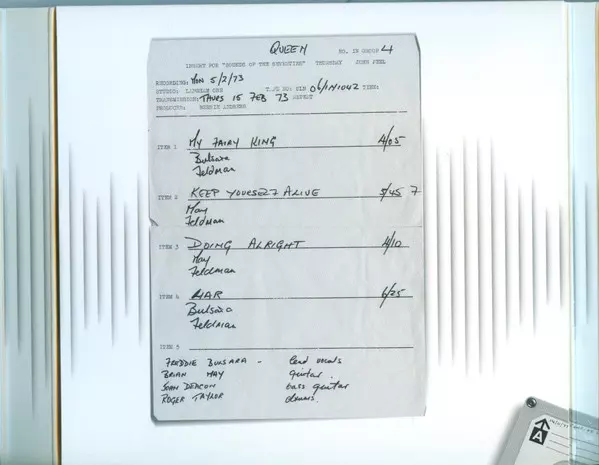 QUEEN NO. IN GROUP 4
INSERT FOR "SOUNDS OF THE SEVENTIES" THURSDAY JOHN PEEL
RECORDING: MON 5/2/73
STUDIO: LANGHAM ONE TAPE NO: 01D 06/1N1042 TIME:
TRANSMISSION: THURS 15 FEB 73 REPEAT
PRODUCER: BERNIE ANDREWS
ITEM 1 MY FAIRY KING 4/05
Bulsara
Feldman
ITEM 2 KEEP YOURSELF ALIVE 5/45 7
May
Feldman
ITEM 3 DOING ALRIGHT 4/10
May
Feldman
ITEM 4 LIAR 6/25
Bulsara
Feldman
ITEM 5
FREDDIE BULSARA - lead vocals
BRIAN MAY guitar.
JOHN DEACON bass guitar
ROGER TAYLOR drums.
A